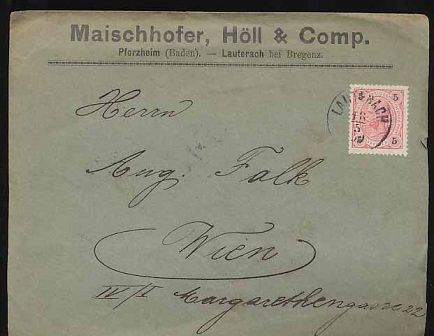 Maischhofer, Höll & Comp.
Pforzheim (Baden). — Lauterach bei Bregenz.
5
LAUTERACH
5
Herrn
Aug. Falk
Wien
IV/I Margarethengasse 22